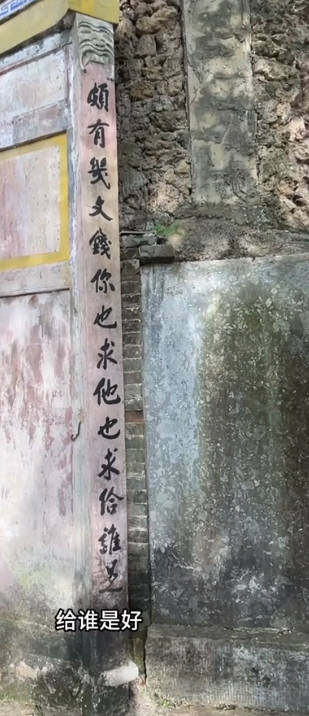 頗有幾文錢你也求他也求給誰是
给谁是好